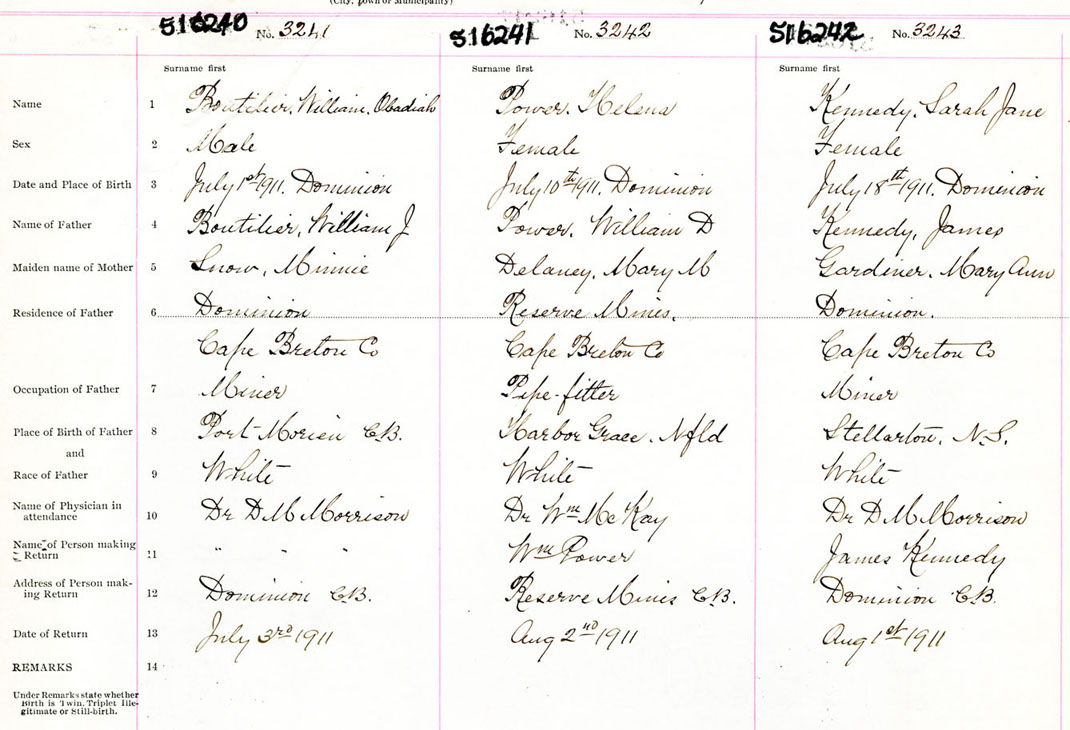 (City, town or Municipality)
516240 No. 3241 516241 No. 3242 516242 No. 3243
Surname first Surname first Surname first
Name 1 Boutilier, William, Obadiah Power, Helena Kennedy, Sarah Jane
Sex 2 Male Female Female
Date and Place of Birth 3 July 1st 1911, Dominion July 10th 1911, Dominion July 18th 1911, Dominion
Name of Father 4 Boutilier, William J Power, William D Kennedy, James
Maiden name of Mother 5 Snow, Minnie Delaney, Mary M Gardiner, Mary Ann
Residence of Father 6 Dominion Reserve Mines, Dominion.
Cape Breton Co Cape Breton Co Cape Breton Co
Occupation of Father 7 Miner Pipe-fitter Miner
Place of Birth of Father 8 Port Morien C.B. Harbor Grace, Nfld Stellarton, N.S.
and
Race of Father 9 White White White
Name of Physician in
attendance 10 Dr D M Morrison Dr Wm McKay Dr D M Morrison
Name of Person making
Return 11 " " " Wm Power James Kennedy
Address of Person mak-
ing Return 12 Dominion C.B. Reserve Mines C.B. Dominion C.B.
Date of Return 13 July 3rd 1911 Aug 2nd 1911 Aug 1st 1911
REMARKS 14
Under Remarks state whether
Birth is Twin, Triplet Ille-
gitimate or Still-birth.